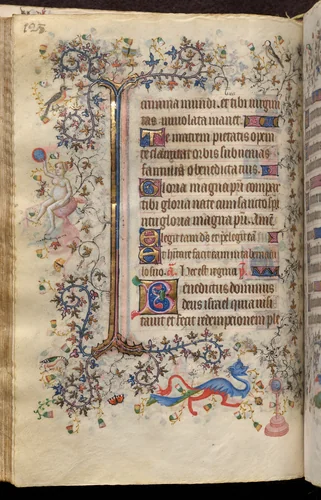 125
mana mundi. et tibi virgini
tas inviolata manet.
Te matrem pietatis opem
te clamitat orbis subvenias
famulis o benedicta tuis.
Gloria magna patri compar
tibi gloria nate cum sancto spi
ritu gloria magna patri. Amen
Elegit eam deus et pelegit eam
Et habitare facit eam in tabernacu
lo suo. a. Hec est virgo ps.
Benedictus dominus
deus israel quia visi
tavit et fecit redempcionem ple